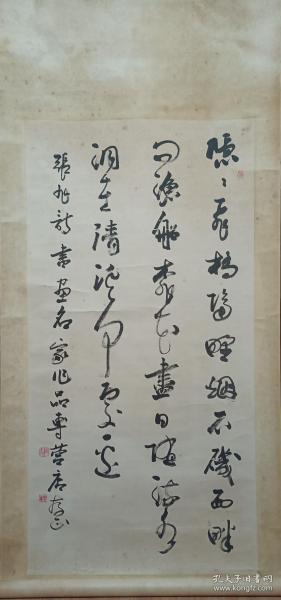 隐隐飞桥隔野烟石矶西畔
问渔船桃花尽日随流水
洞在清溪何处边
張旭詩書畫名家作品專营店存正
孔夫子旧书网